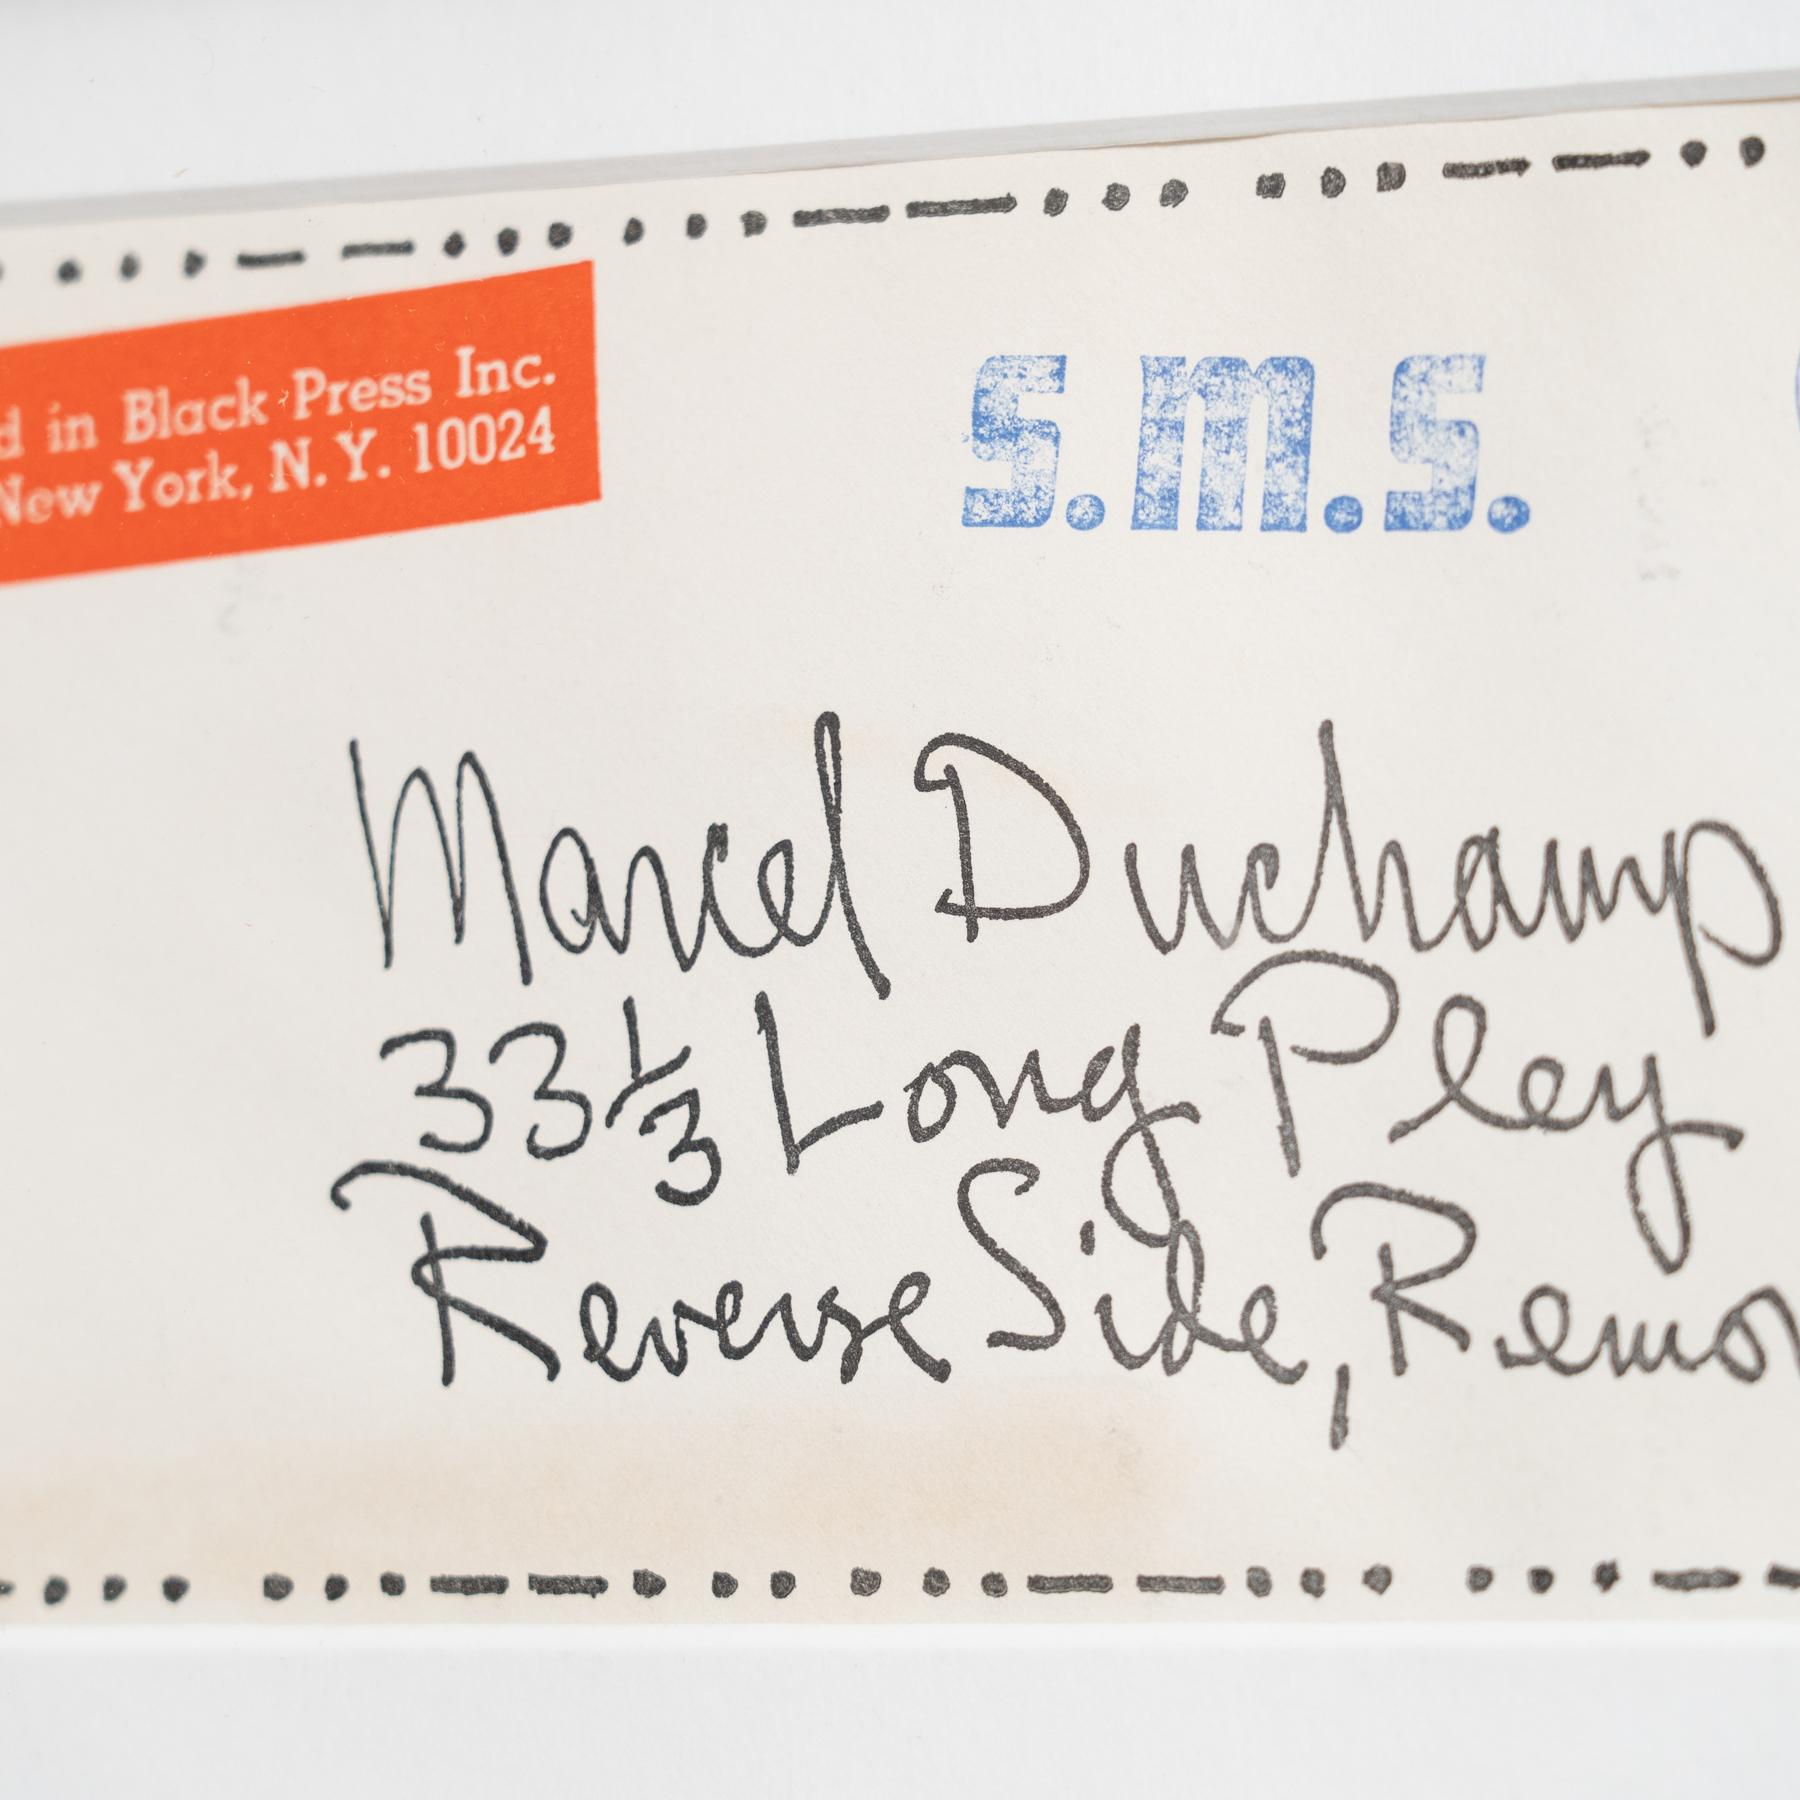 in Black Press Inc.
New York, N. Y. 10024
S.M.S.
Marcel Duchamp
33 1/3 Long Play
Reverse Side,